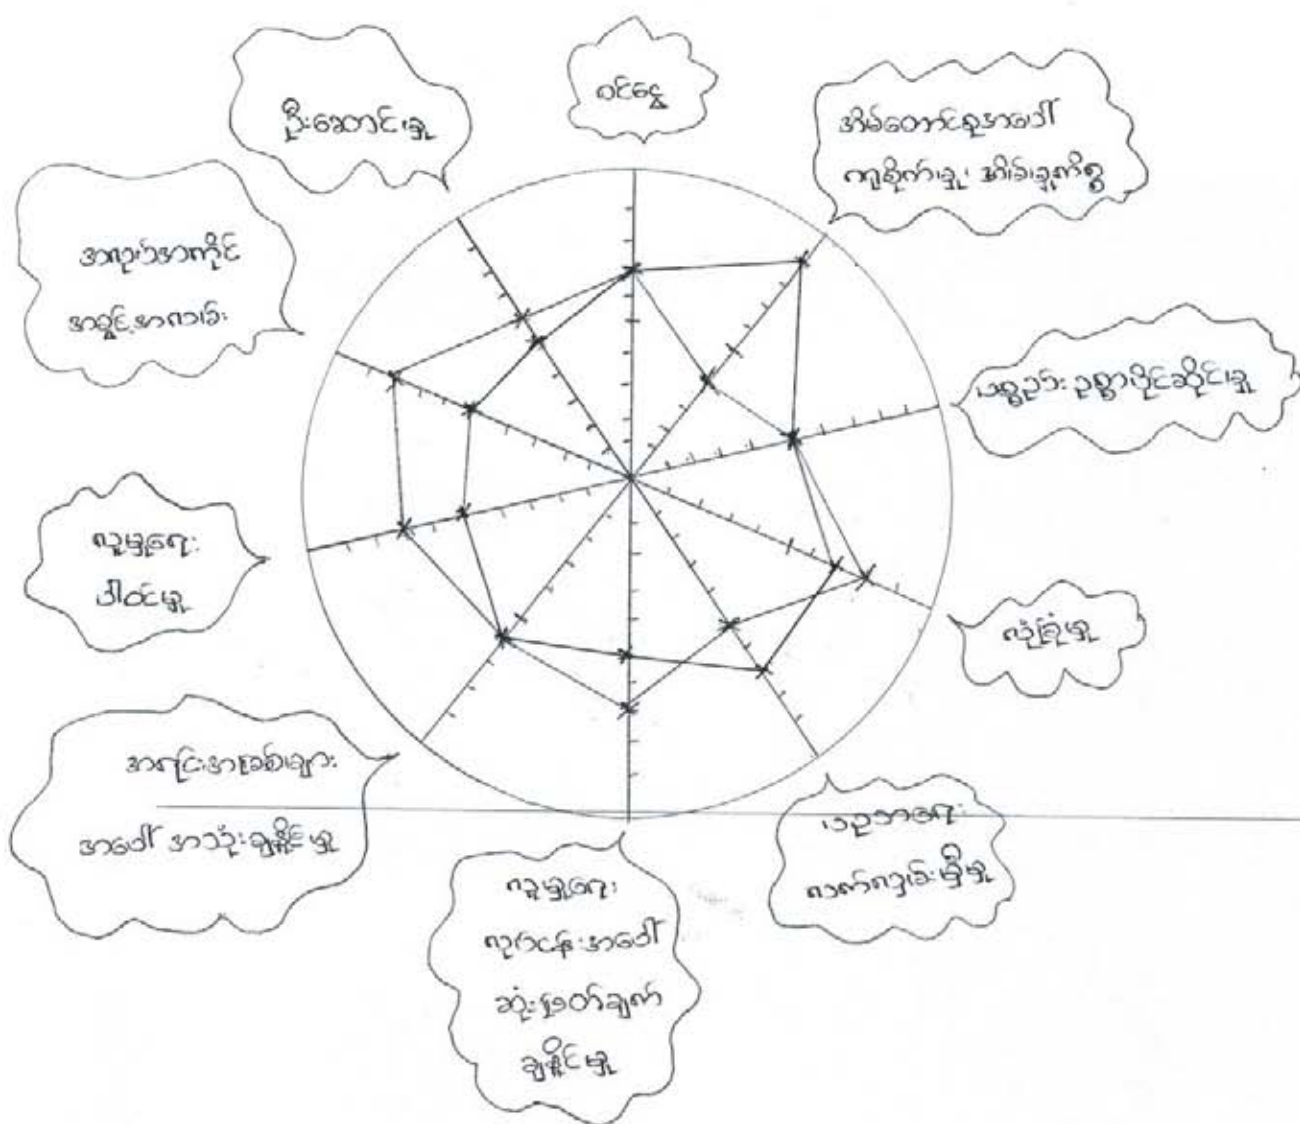 ဝင်ငွေ
အိမ်ထောင်စုအပေါ်
ကျစိုက်မှု၊ အိမ်မှုကိစ္စ
ပစ္စည်းဥစ္စာပိုင်ဆိုင်မှု
လုံခြုံမှု
ပညာရေး
လက်လှမ်းမှီမှု
လူမှုရေး
လုပ်ငန်းအပေါ်
ဆုံးဖြတ်ချက်
ချနိုင်မှု
အရင်းအမြစ်များ
အပေါ် အသုံးချနိုင်မှု
လူမှုရေး
ပါဝင်မှု
အလုပ်အကိုင်
အခွင့်အလမ်း
ဦးဆောင်မှု